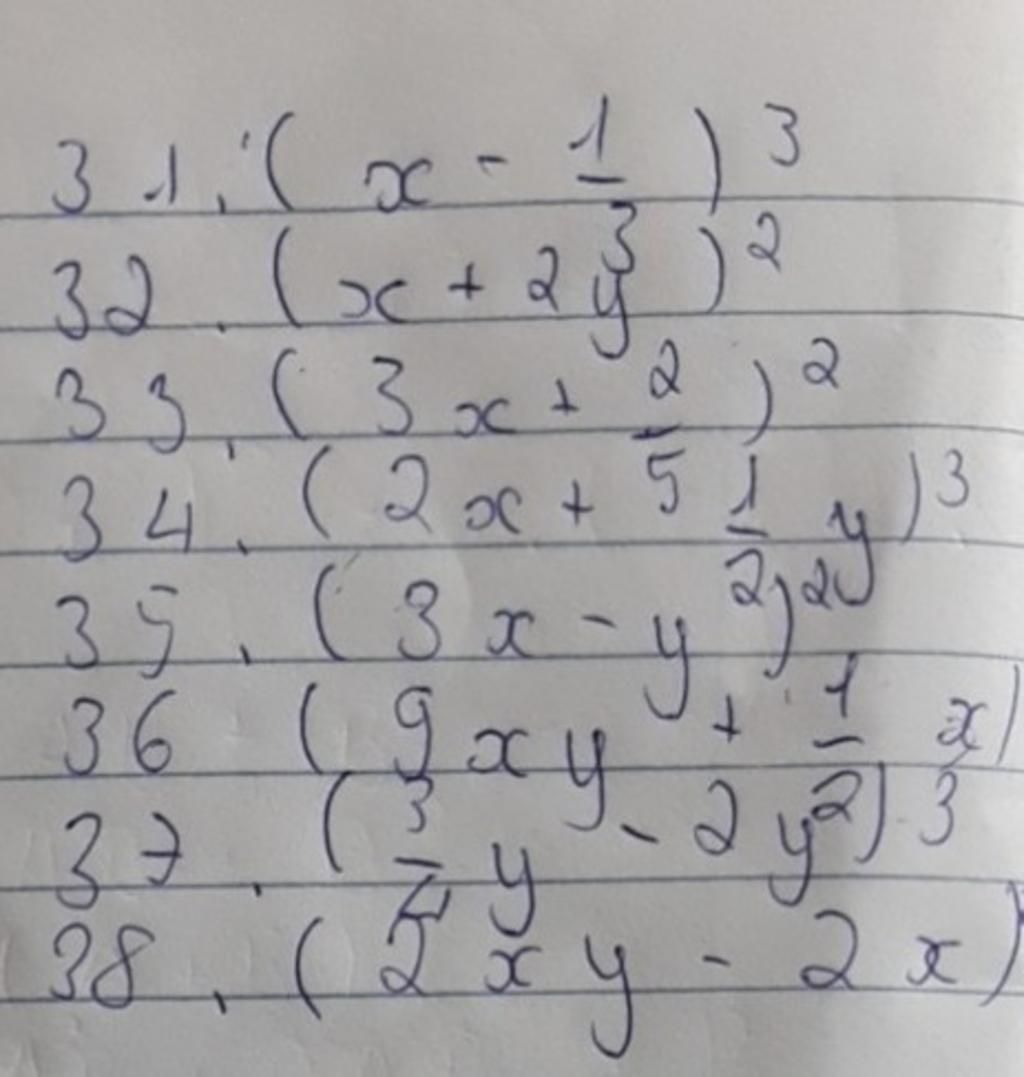 31. (x - 1/3)³
32. (x + 2y)²
33. (3x + 2/5)²
34. (2x + 1/2 y)³
35. (3x - y)²
36 (9xy + 1/2 x)
37. (3/4 y - 2y)³
38. (2xy - 2x)